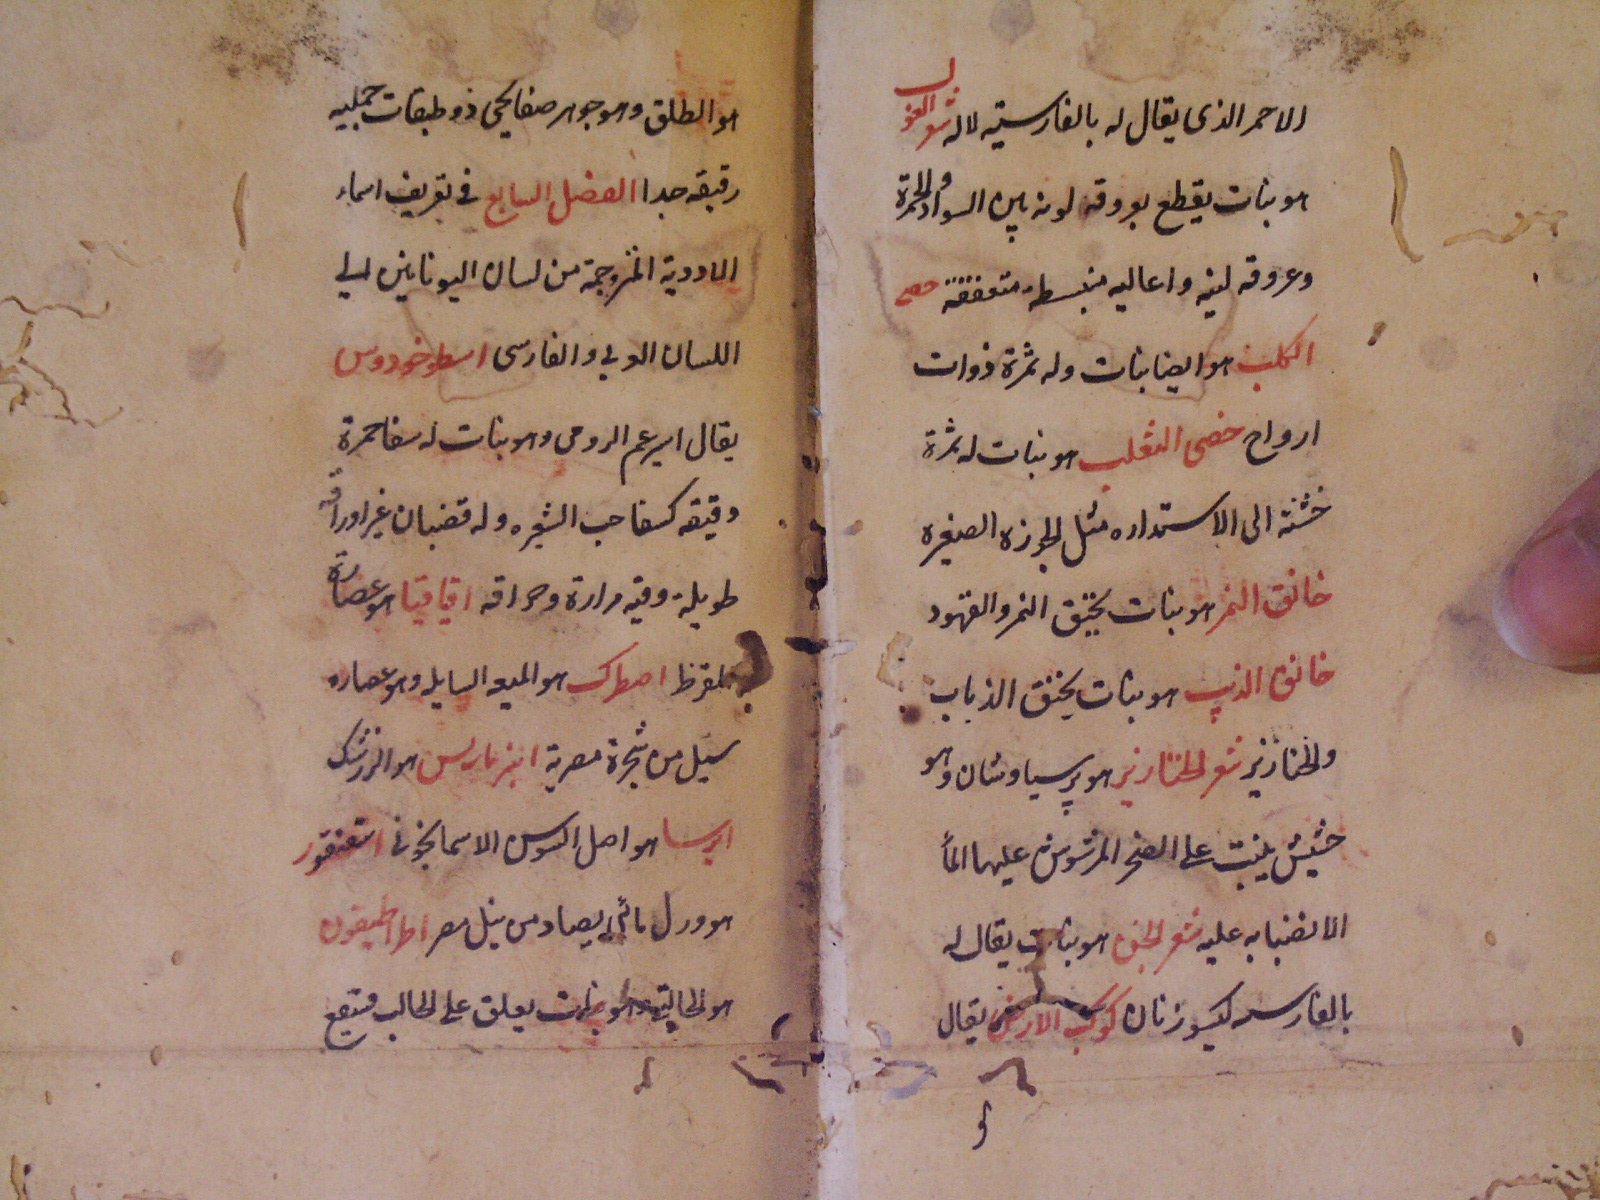 الاحمر الذى يقال له بالفارسيته لاله شعر الغول
هو بنات يقطع بعروقه لونه بين السواد والحمرة
وعروقه لينه واعاليه منبسطه متعففه خصى
الكلب هو ايضا بنات وله ثمرة ذوات
ارواح خصى الثعلب هو بنات له ثمرة
خشنه الى الاستداره مثل الجوزه الصغيره
خانق النمر هو بنات يخنق النمر والفهود
خانق الذيب هو بنات يخنق الذباب
والخنازير شعر الخنازير هو پرسياوشان وهو
حشيش ينبت على الصخر المرشوش عليها المأ
الانضبابه عليه شعر الجن هو بنات يقال له
بالفارسيه كيسوزنان كوكب الارض يقال
هو الطلق وهو جوهر صفايحى ذو طبقات جبليه
رقيقه جدا الفصل السابع فى تعريف اسماء
الادوية المترجمة من لسان اليونانين الى
اللسان العربي والفارسى اسطوخودوس
يقال ايرعم الرومى وهو بنات له سفا حمرة
دقيقه كسفا حب الشعيره وله قضبان غبر اوراقه
طويلة وفيه مرارة وحرافه اقاقيا هو عصارة
القرظ اصطرك هو الميعه السايله وهو عصاره
سيل من شجرة مصرية انبرباريس هو الزرشك
ايرسا هو اصل السوسن الاسمانجونى اسقنقور
هو ورل مائى يصاد من نيل مصر اطراطيقون
هو الحالبى وهو بنات يعلق على الحالب فينفع